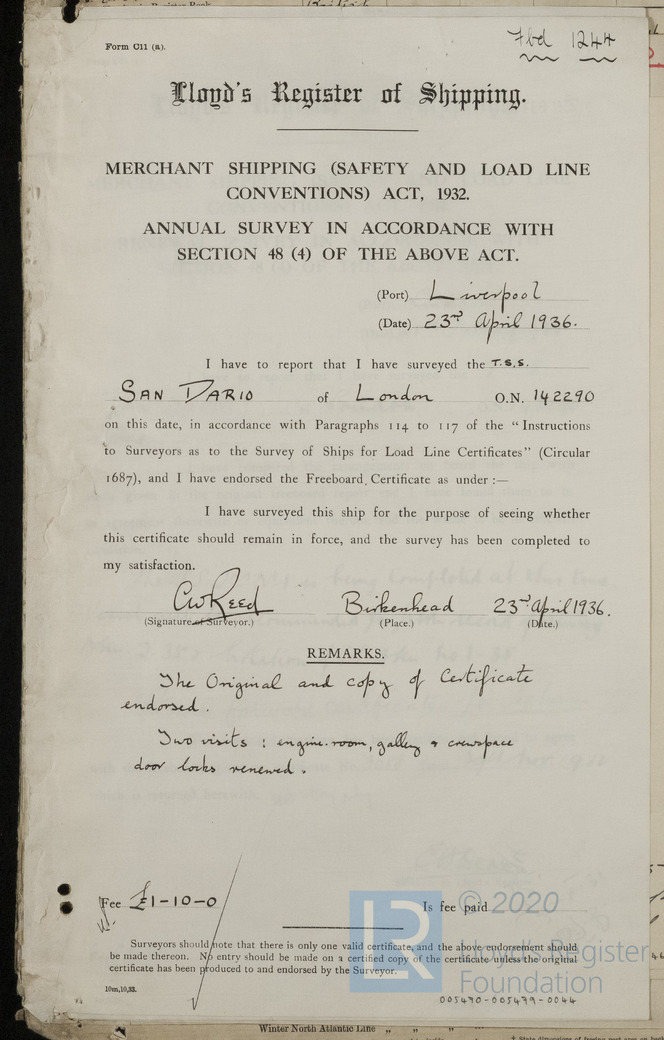 Form C11 (a).
Fbd 1244
Lloyd's Register of Shipping.
MERCHANT SHIPPING (SAFETY AND LOAD LINE
CONVENTIONS) ACT, 1932.
ANNUAL SURVEY IN ACCORDANCE WITH
SECTION 48 (4) OF THE ABOVE ACT.
(Port) Liverpool
(Date) 23rd April 1936.
I have to report that I have surveyed the T.S.S.
SAN DARIO of London O.N. 142290
on this date, in accordance with Paragraphs 114 to 117 of the "Instructions
to Surveyors as to the Survey of Ships for Load Line Certificates" (Circular
1687), and I have endorsed the Freeboard Certificate as under :—
I have surveyed this ship for the purpose of seeing whether
this certificate should remain in force, and the survey has been completed to
my satisfaction.
CW Reed Birkenhead 23rd April 1936.
(Signature of Surveyor.) (Place.) (Date.)
REMARKS.
The Original and copy of Certificate
endorsed.
Two visits : engine-room, galley & crewspace
door locks renewed.
Fee £1-10-0 Is fee paid
© 2020
Surveyors should note that there is only one valid certificate, and the above endorsement should
be made thereon. No entry should be made on a certified copy of the certificate unless the original
certificate has been produced to and endorsed by the Surveyor.
Lloyd's Register
Foundation
10m,10,33.
005490-005499-0044
Winter North Atlantic Line " " "